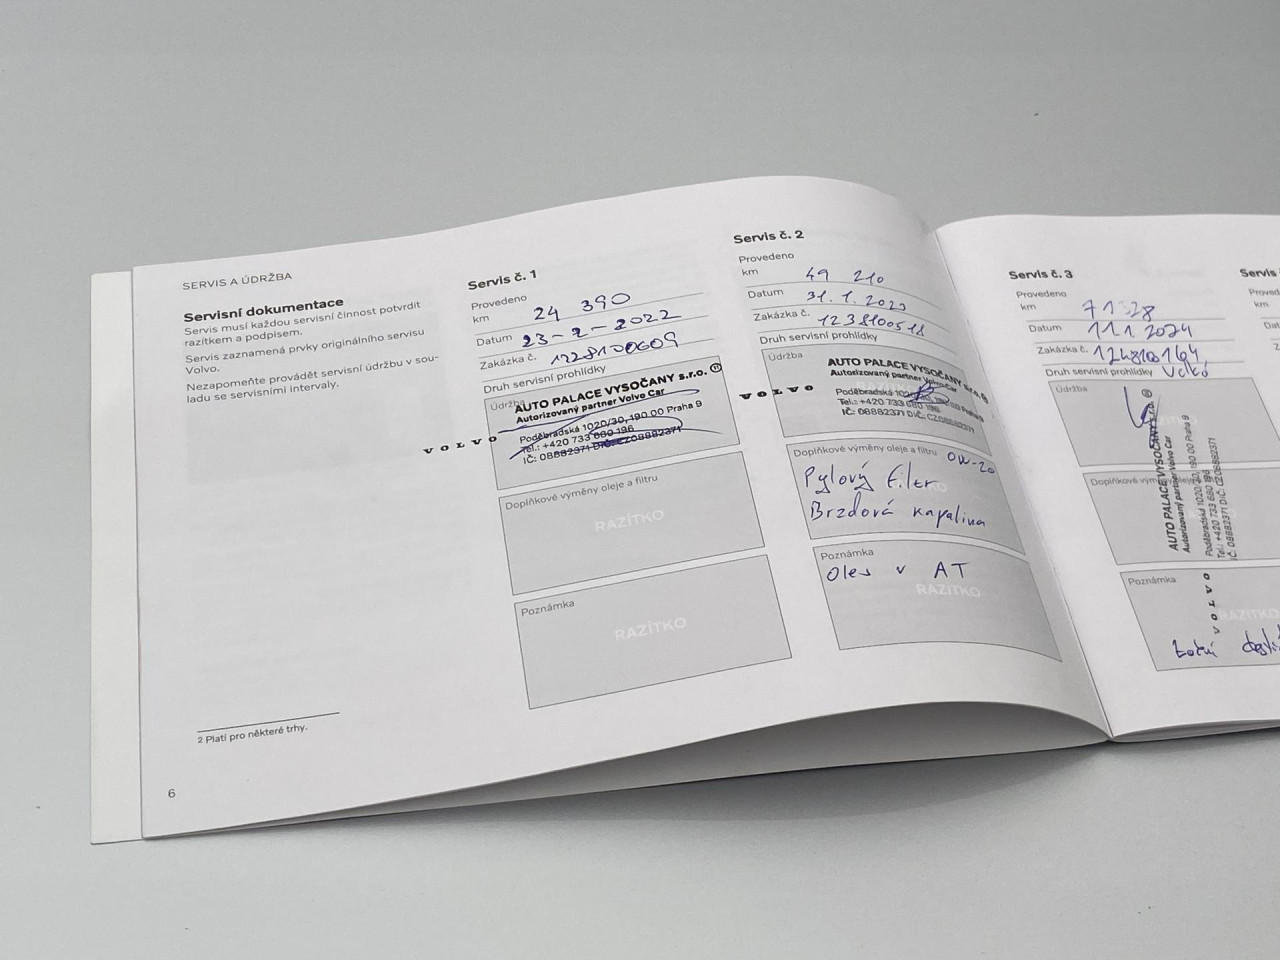 SERVIS A ÚDRŽBA
Servisní dokumentace
Servis musí každou servisní činnost potvrdit
razítkem a podpisem.
Servis zaznamená prvky originálního servisu
Volvo.
Nezapomeňte provádět servisní údržbu v sou-
ladu se servisními intervaly.
2 Platí pro některé trhy.
6
Servis č. 1
Provedeno
km 24 390
Datum 23-2-2022
Zakázka č. 1228100609
Druh servisní prohlídky
Údržba
AUTO PALACE VYSOČANY s.r.o. 11
Autorizovaný partner Volvo Car
Poděbradská 1020/30, 190 00 Praha 9
Tel.: +420 733 680 196
IČ: 08882371 DIČ: CZ08882371
VOLVO
Doplňkové výměny oleje a filtru
RAZÍTKO
Poznámka
RAZÍTKO
Servis č. 2
Provedeno
km 49 210
Datum 31.1.2023
Zakázka č. 1238100518
Druh servisní prohlídky
Údržba
AUTO PALACE VYSOČANY s.r.o.
Autorizovaný partner Volvo Car
Poděbradská 1020/30, 190 00 Praha 9
Tel.: +420 733 680 196
IČ: 08882371 DIČ: CZ08882371
VOLVO
Doplňkové výměny oleje a filtru 0W-20
Pylový filtr
Brzdová kapalina
Poznámka
Olej v AT
RAZÍTKO
Servis č. 3
Provedeno
km
Datum 11.1.2024
Zakázka č. 1248100164
Druh servisní prohlídky
Údržba
AUTO PALACE VYSOČANY s.r.o.
Autorizovaný partner Volvo Car
Poděbradská 1020/30, 190 00 Praha 9
Tel.: +420 733 680 196
IČ: 08882371 DIČ: CZ08882371
VOLVO
Doplňkové výměny oleje
Poznámka
RAZÍTKO
Servis
Datum